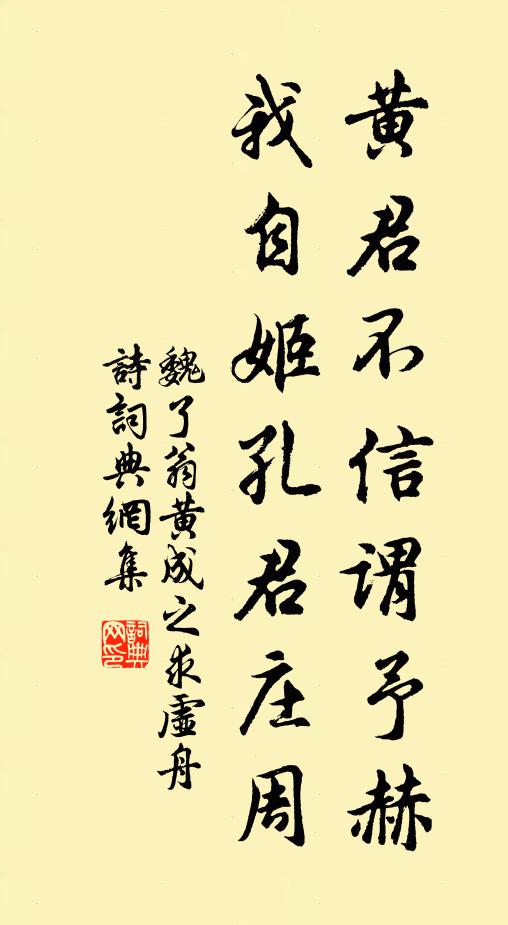 黄君不信謂予赫
我自姬孔君庄周
魏了翁黄成之求虛舟
詩詞典網集
詞典网印